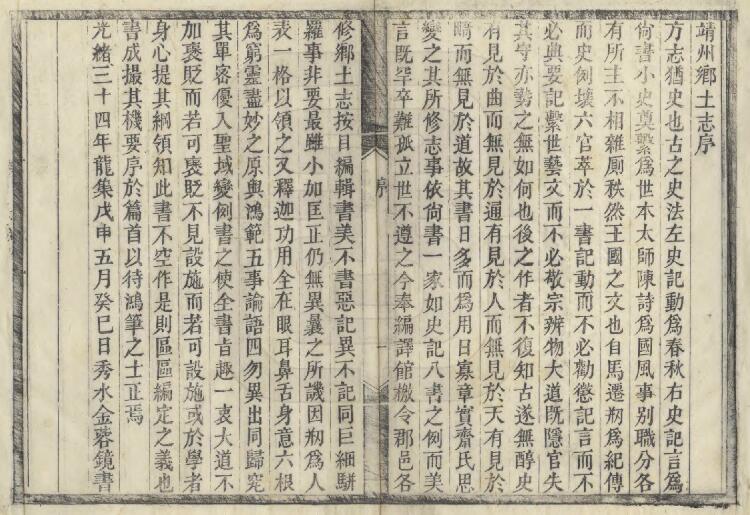 靖州鄉土志序
方志猶史也古之史法左史記動爲春秋右史記言爲
尙書小史奠繫爲世本太師陳詩爲國風事別職分各
有所主不相雜厠秩然王國之文也自馬遷刱爲紀傳
而史例壞六官萃於一書記動而不必勸懲記言而不
必典要記繫世藝文而不必敬宗辨物大道旣隱官失
其守亦勢之無如何也後之作者不復知古遂無醇史
有見於曲而無見於通有見於人而無見於天有見於
晴而無見於道故其書日多而爲用日寡章實齋氏思
變之其所修志事依尙書一家如史記八書之例而美
言旣斈卒難孤立世不遵之今奉編譯館檄令郡邑各
序
一
修鄉土志按目編輯書美不書惡記異不記同巨細駢
羅事非要最雖小加匡正仍無異曩之所譏因刱爲人
表一格以領之又釋迦功用全在眼耳鼻舌身意六根
爲窮靈盡妙之原與鴻範五事論語四勿異出同歸究
其單容優入聖域變例書之使全書旨趣一衷大道不
加褒貶而若可褒貶不見設施而若可設施或於學者
身心提其綱領知此書不空作是則區區編定之義也
書成撮其機要序於篇首以待鴻筆之士正焉
光緒三十四年龍集戊申五月癸巳日秀水金蓉鏡書